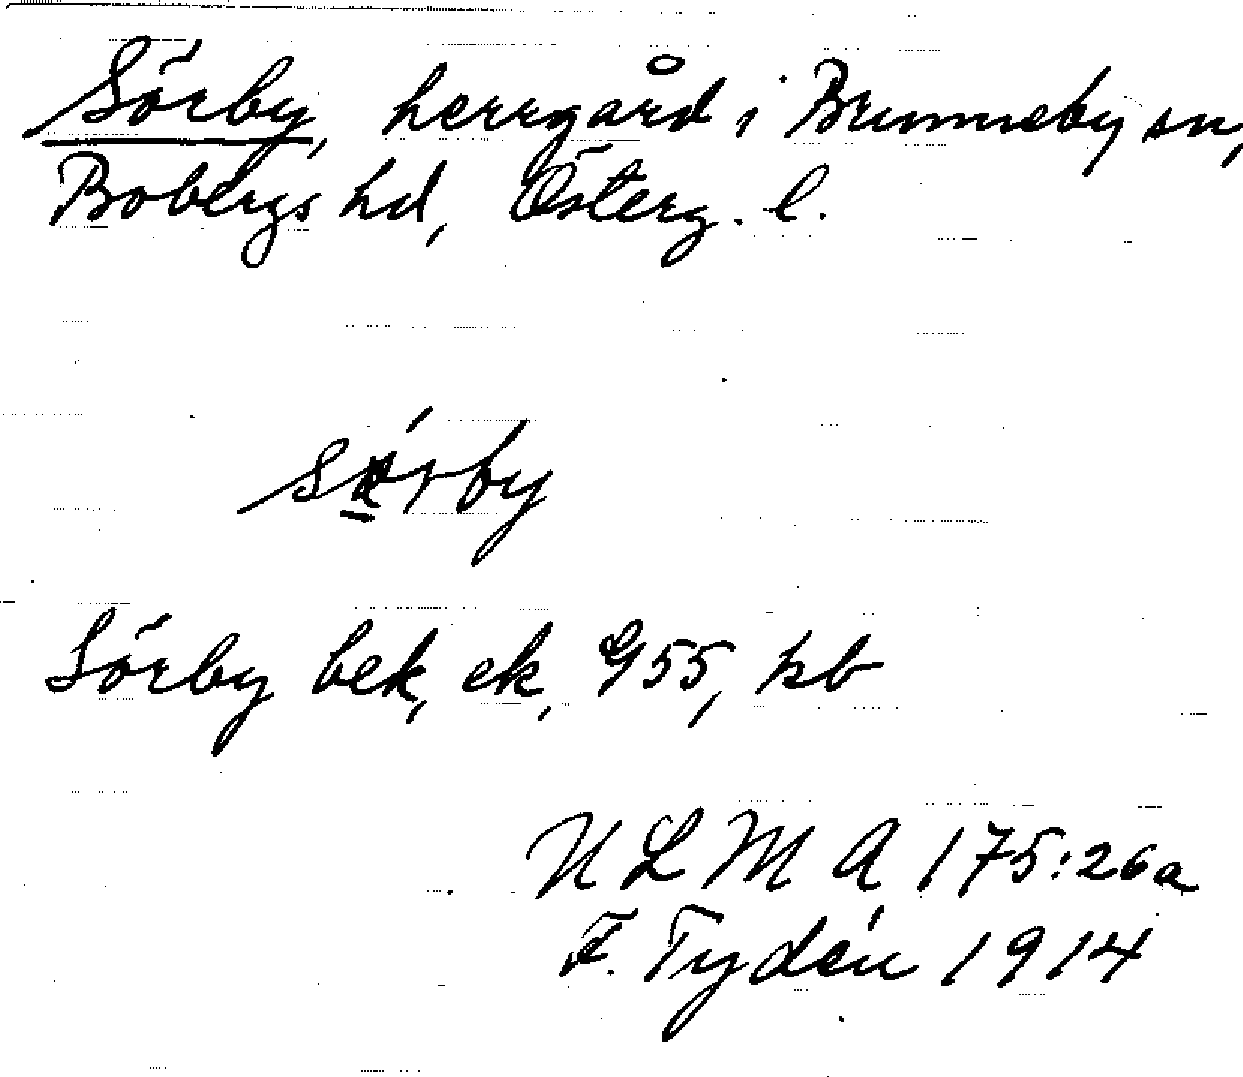 Sörby, herrgård i Brunneby sn,
Bobergs hd, Österg. l.
Sörby bek, ek, G55, kb
ULMA 175:26a
F. Tydén 1914